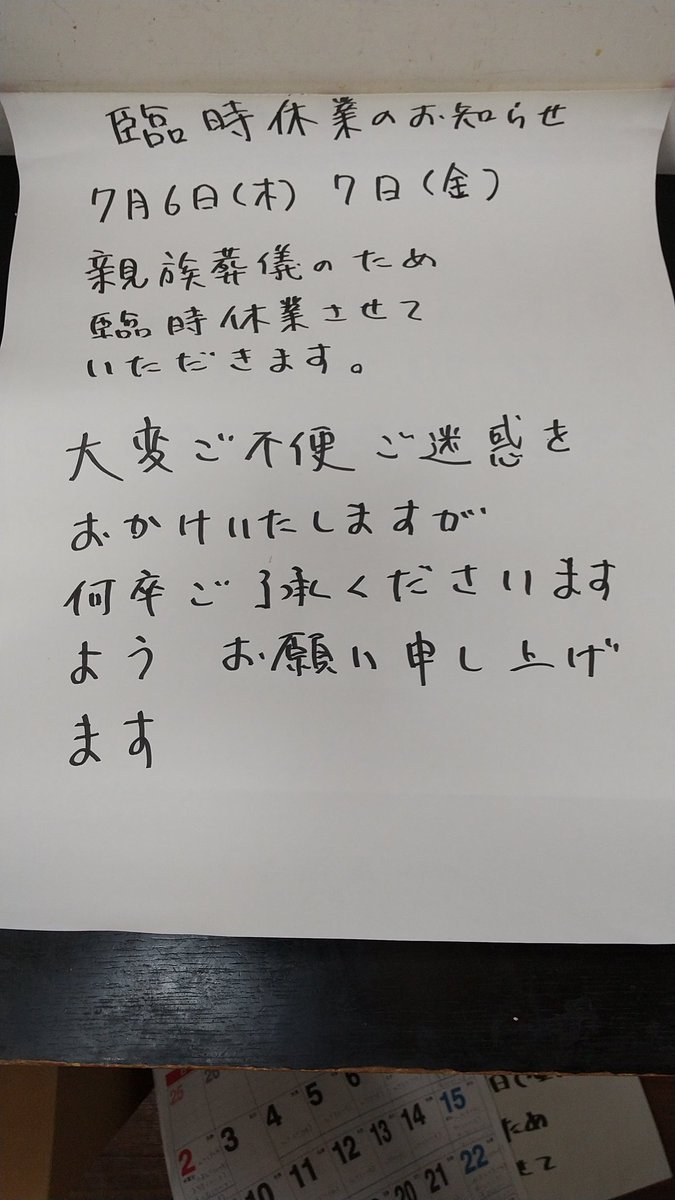 臨時休業のお知らせ
7月6日(木) 7日(金)
親族葬儀のため
臨時休業させて
いただきます。
大変ご不便 ご迷惑を
おかけいたしますが
何卒ご了承くださいます
よう お願い申し上げ
ます
26
3 4 5 6
2
10 11 12 13 14 15
20 21 22
ため